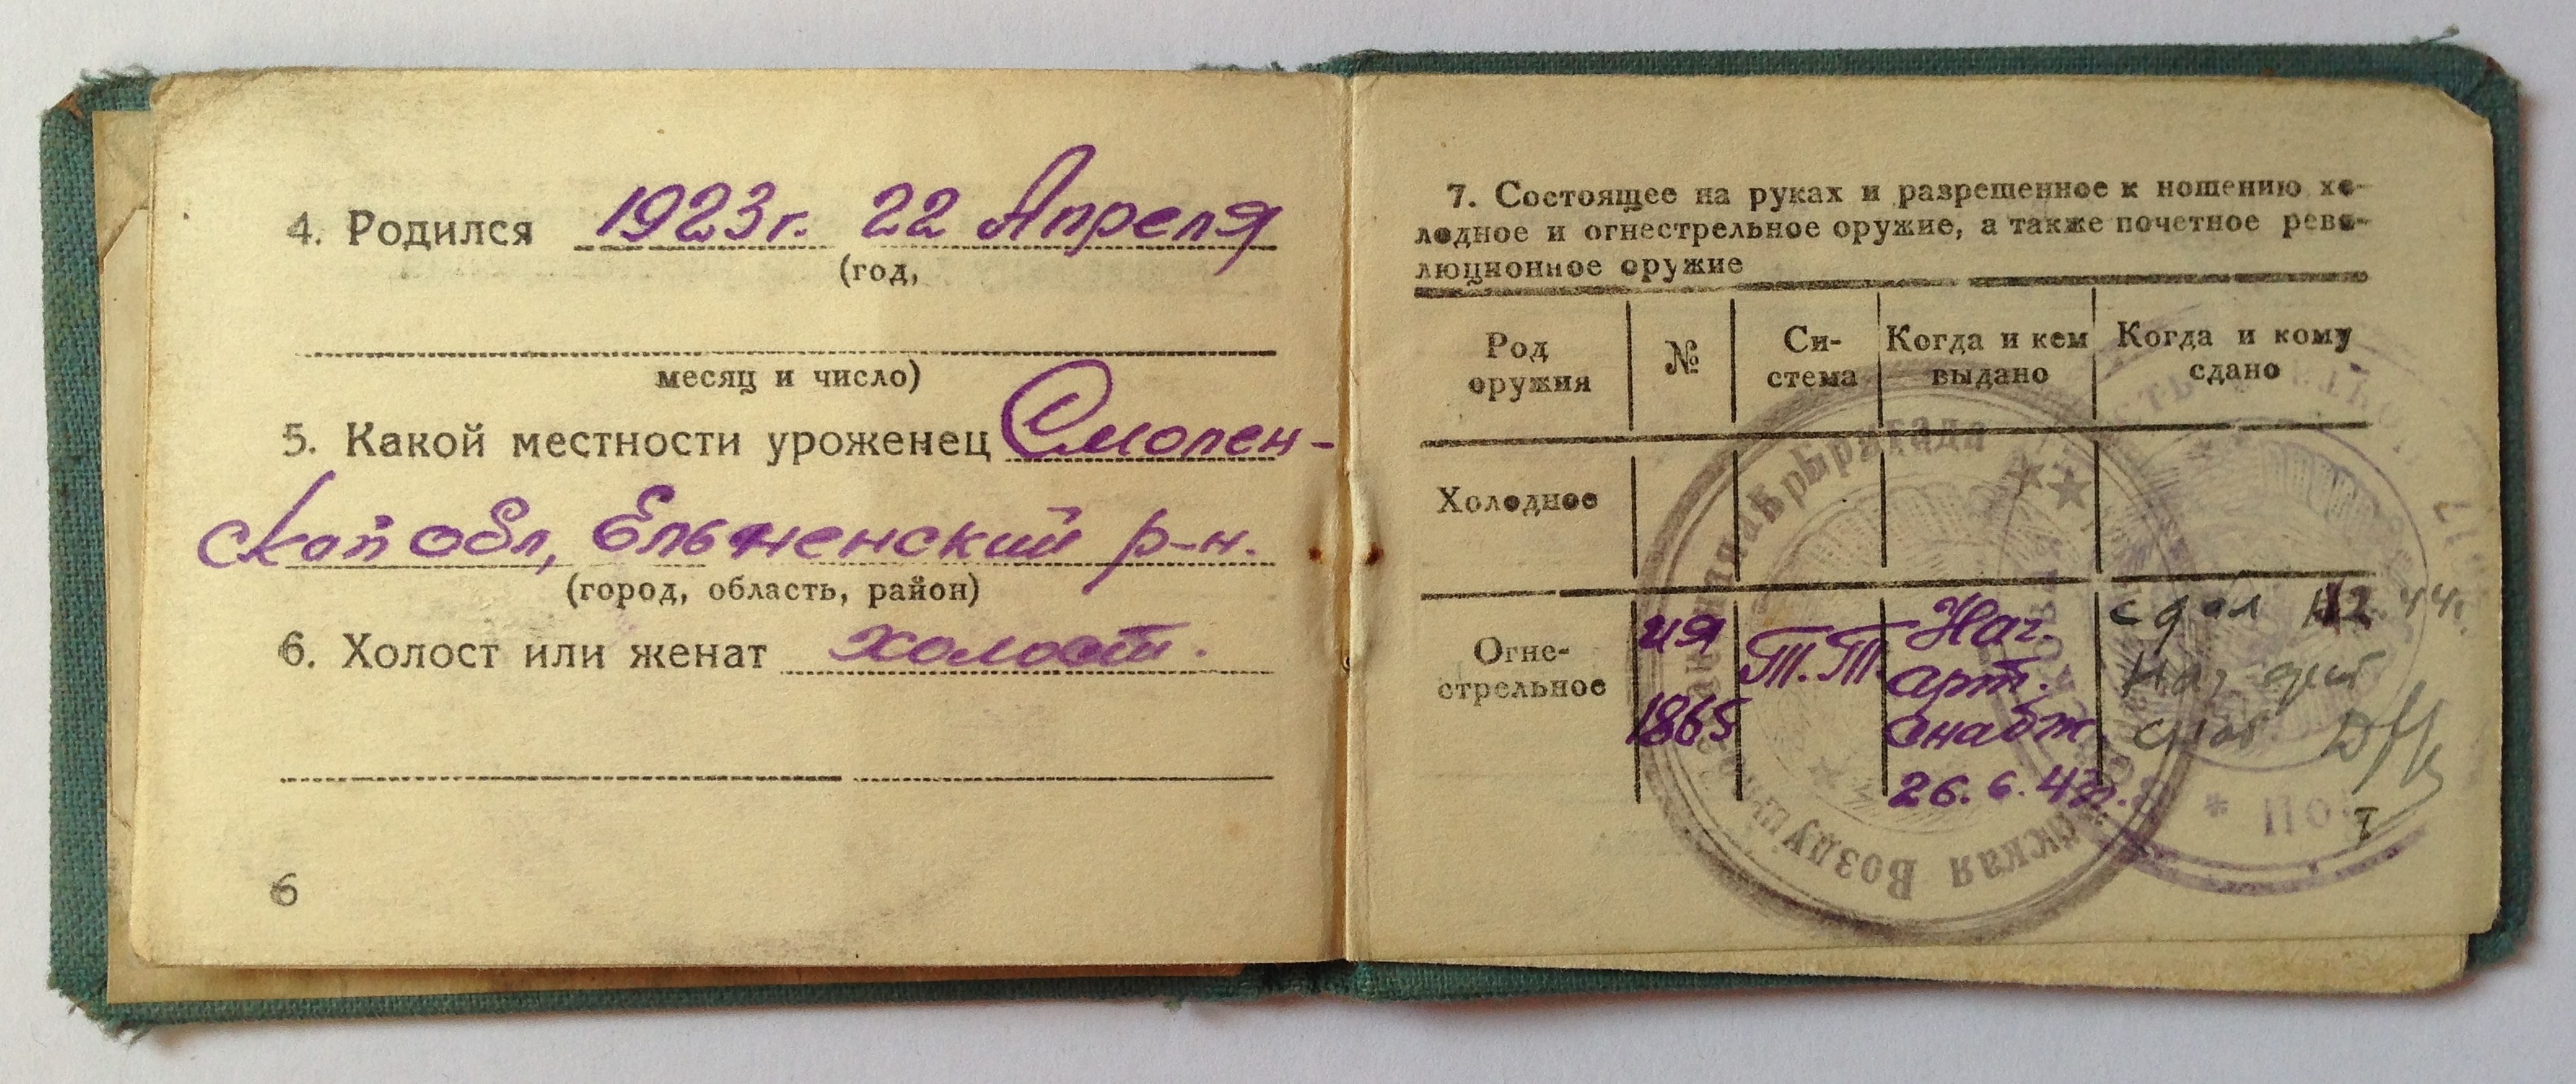 4. Родился 1923г. 22 Апреля
(год,
месяц и число)
5. Какой местности уроженец Смолен-
ской обл, Ельненский р-н.
(город, область, район)
6. Холост или женат холост.
6
7. Состоящее на руках и разрешенное к ношению хо-
лодное и огнестрельное оружие, а также почетное рево-
люционное оружие
Род оружия
№
Си-
стема
Когда и кем
выдано
Когда и кому
сдано
Холодное
Огне-
стрельное
ИЯ
1865
Т.Т.
Нач.
арт.
снабж.
26.6.43г.
сдал
Нач
Бригада
ская Воздуш